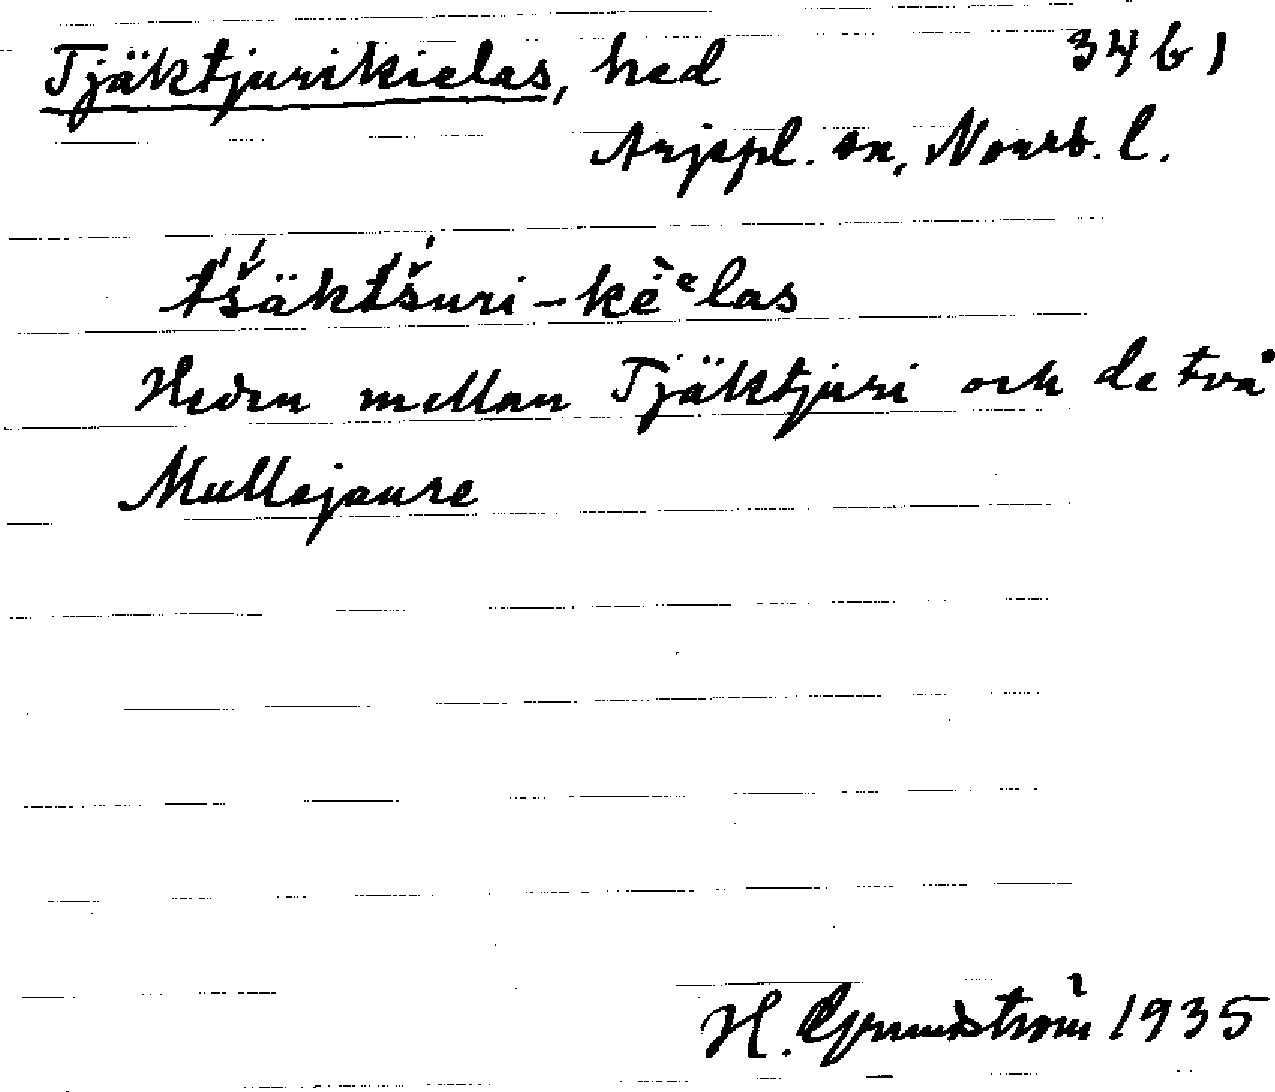 Tjäktjurikielas, hed 3461
Arjepl. sn, Norrb. l.
t́š́äkt́š́uri-kè̄ᵉlas
Heden mellan Tjäktjuri och de två
Mullejaure
H. Grundström 1935